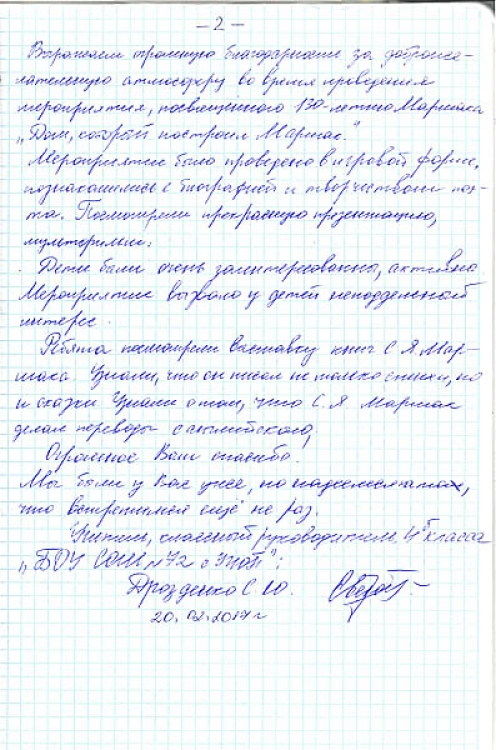 – 2 –
Выражаем огромную благодарность за доброже-
лательную атмосферу во время проведения
мероприятия, посвящённого 130-летию Маршака
„Дом, который построил Маршак."
Мероприятие было проведено в игровой форме,
познакомились с биографией и творчеством поэ-
та. Посмотрели прекрасную презентацию,
мультфильм.
Дети были очень заинтересованны, активны.
Мероприятие вызвало у детей неподдельной
интерес.
Ребята посмотрели выставку книг С. Я. Мар-
шака. Узнали, что он писал не только стихи, но
и сказки. Узнали о том, что С. Я. Маршак
делал переводы с английского.
Огромное Вам спасибо!
Мы были у Вас уже, но надеемся
что встретимся ещё не раз.
классный руководитель 4 класса
„БОУ СОШ № 72 с УИОП":
Дрозденко С. Ю.
20.02.2017 г